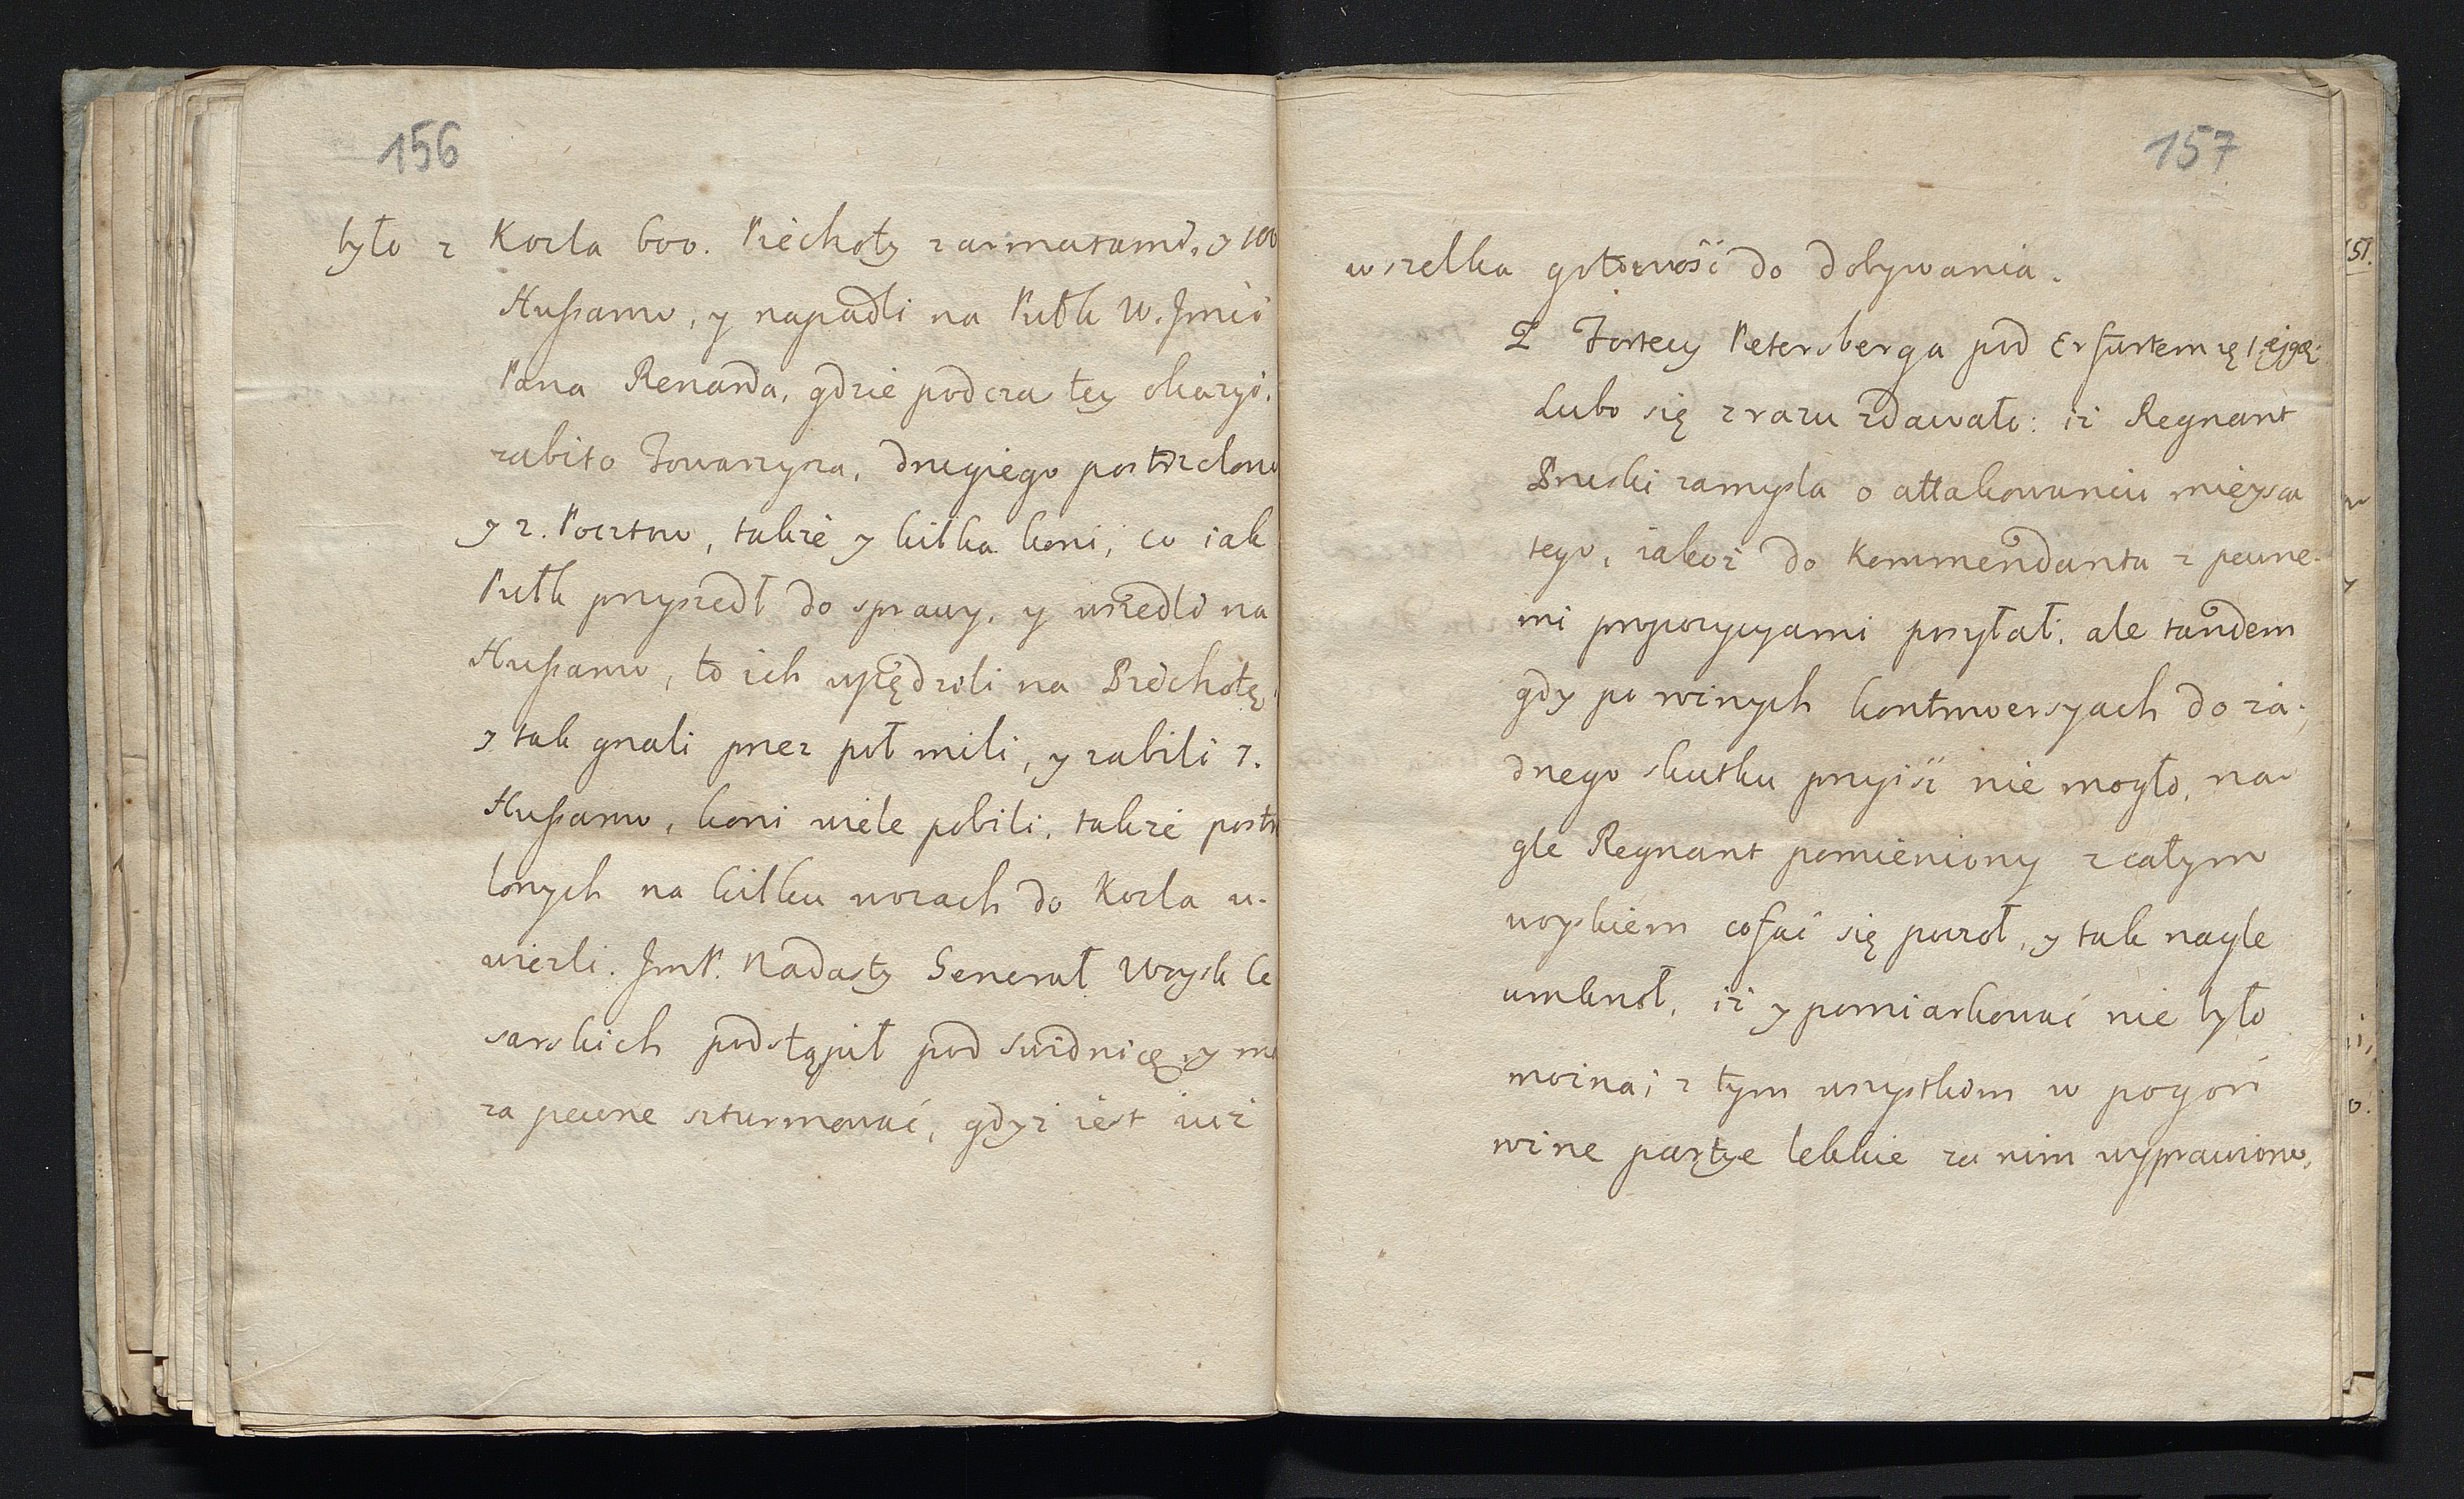 156
było z Kozla 600. Piechoty z armatami, y 100
Hussarow, y napadli na Pułk W. Jmći
Pana Renarda, gdzie podczas tey okazyi,
zabito Towarzysza, drugiego postrzelono
y 2. Pocztow, takze y kilka koni, co iak
Pułk przyszedł do sprawy, y wszedli na
Hussarow, to ich wpędzili na Piechotę,
y tak gnali przez poł mili, y zabili 7.
Hussarow, koni wiele pobili, takze postrze
lonych na kilku wozach do Kozla u-
wiezli. JmP. Nadasty Generał Woysk Ce
sarskich podstąpił pod Swidnicę, y ma
za pewne szturmować, gdyż iest iuż
157
wszelka gotowość do dobywania.
Z Fortecy Petersberga pod Erfurtem
Lubo się zrazu zdawało: iż Regnant
Pruski zamysla o attakowaniu mieysca
tego, iakoż do Kommendanta z pewne-
mi propozycyami posyłał: ale tandem
gdy po roznych kontrowersyach do ża-
dnego skutku przyiść nie mogło, na-
gle Regnant pomieniony z całym
woyskiem cofać się począł, y tak nagle
umknoł, iż y pomiarkować nie było
można; z tym wszystkim w pogoń
rożne partye lekkie za nim wyprawiono,
51.